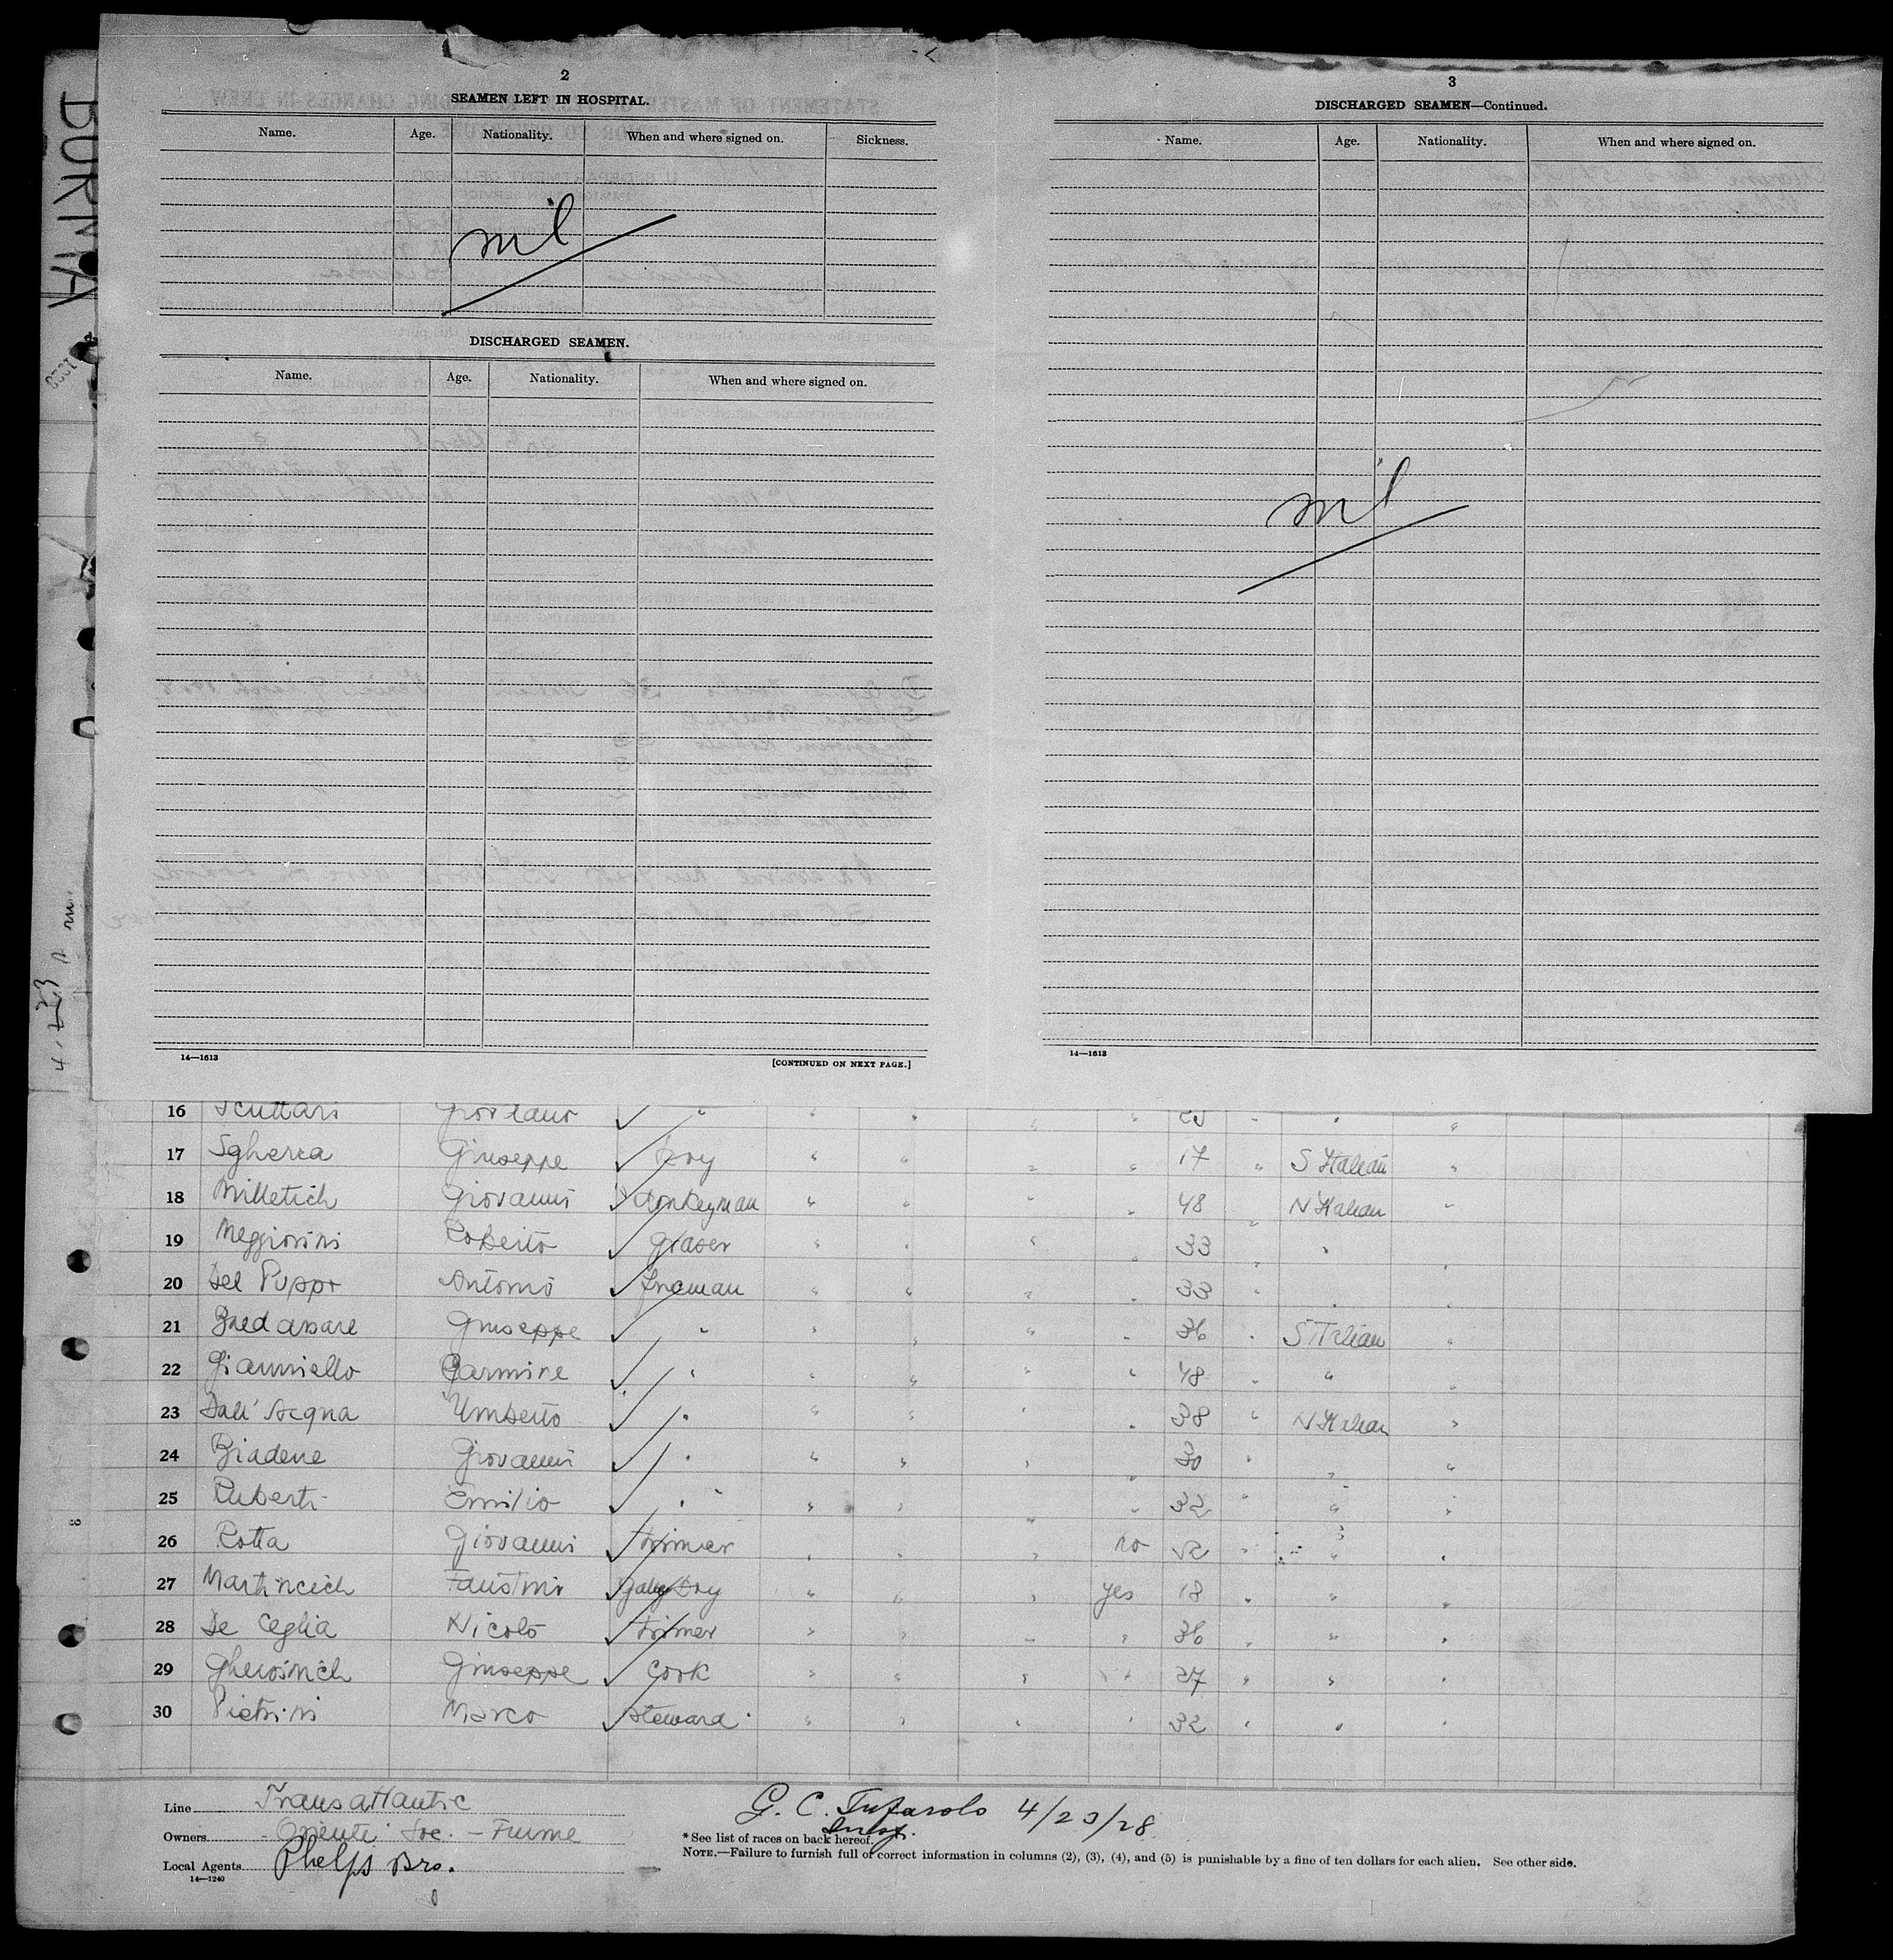 2
SEAMEN LEFT IN HOSPITAL.
Name. Age. Nationality. When and where signed on. Sickness.
nil
DISCHARGED SEAMEN.
Name. Age. Nationality. When and where signed on.
14—1613 [CONTINUED ON NEXT PAGE.]
3
DISCHARGED SEAMEN—Continued.
Name. Age. Nationality. When and where signed on.
nil
14—1613
16 Scuttari Giordano ✓ "
17 Sgherza Giuseppe ✓ boy " " " " 17 " S Italian "
18 Milletich Giovanni ✓ donkeyman " " " " 48 " N Italian "
19 Meggiorini Roberto ✓ greaser " " " 33 " " "
20 Del Puppo Antonio ✓ fireman " " " " 33 " " "
21 Giuseppe ✓ " " " " " 36 " S Italian "
22 Gianniello Carmine ✓ " " " " " 48 " " "
23 Dall' Acqua Umberto ✓ " " " " " 38 " N Italian "
24 Biadene Giovanni ✓ " " " " " 30 " " "
25 Ruberti Emilio ✓ " " " " " 32 " " "
26 Rotta Giovanni ✓ trimer " " " no 52 " " "
27 Martincich Faustino ✓ boy " " " yes 18 " " "
28 De Ceglia Nicolò ✓ trimer " " " " 36 " " "
29 Gherosinich Giuseppe ✓ cook " " " " 27 " " "
30 Pietrini Marco ✓ steward " " " " 32 " " "
Line Transatlantic
Owners Oriente Soc. - Fiume
Local Agents Phelps Bro.
14—1240
G. C. Tufarolo 4/23/28
Insp.
* See list of races on back hereof.
NOTE.—Failure to furnish full or correct information in columns (2), (3), (4), and (5) is punishable by a fine of ten dollars for each alien. See other side.
3